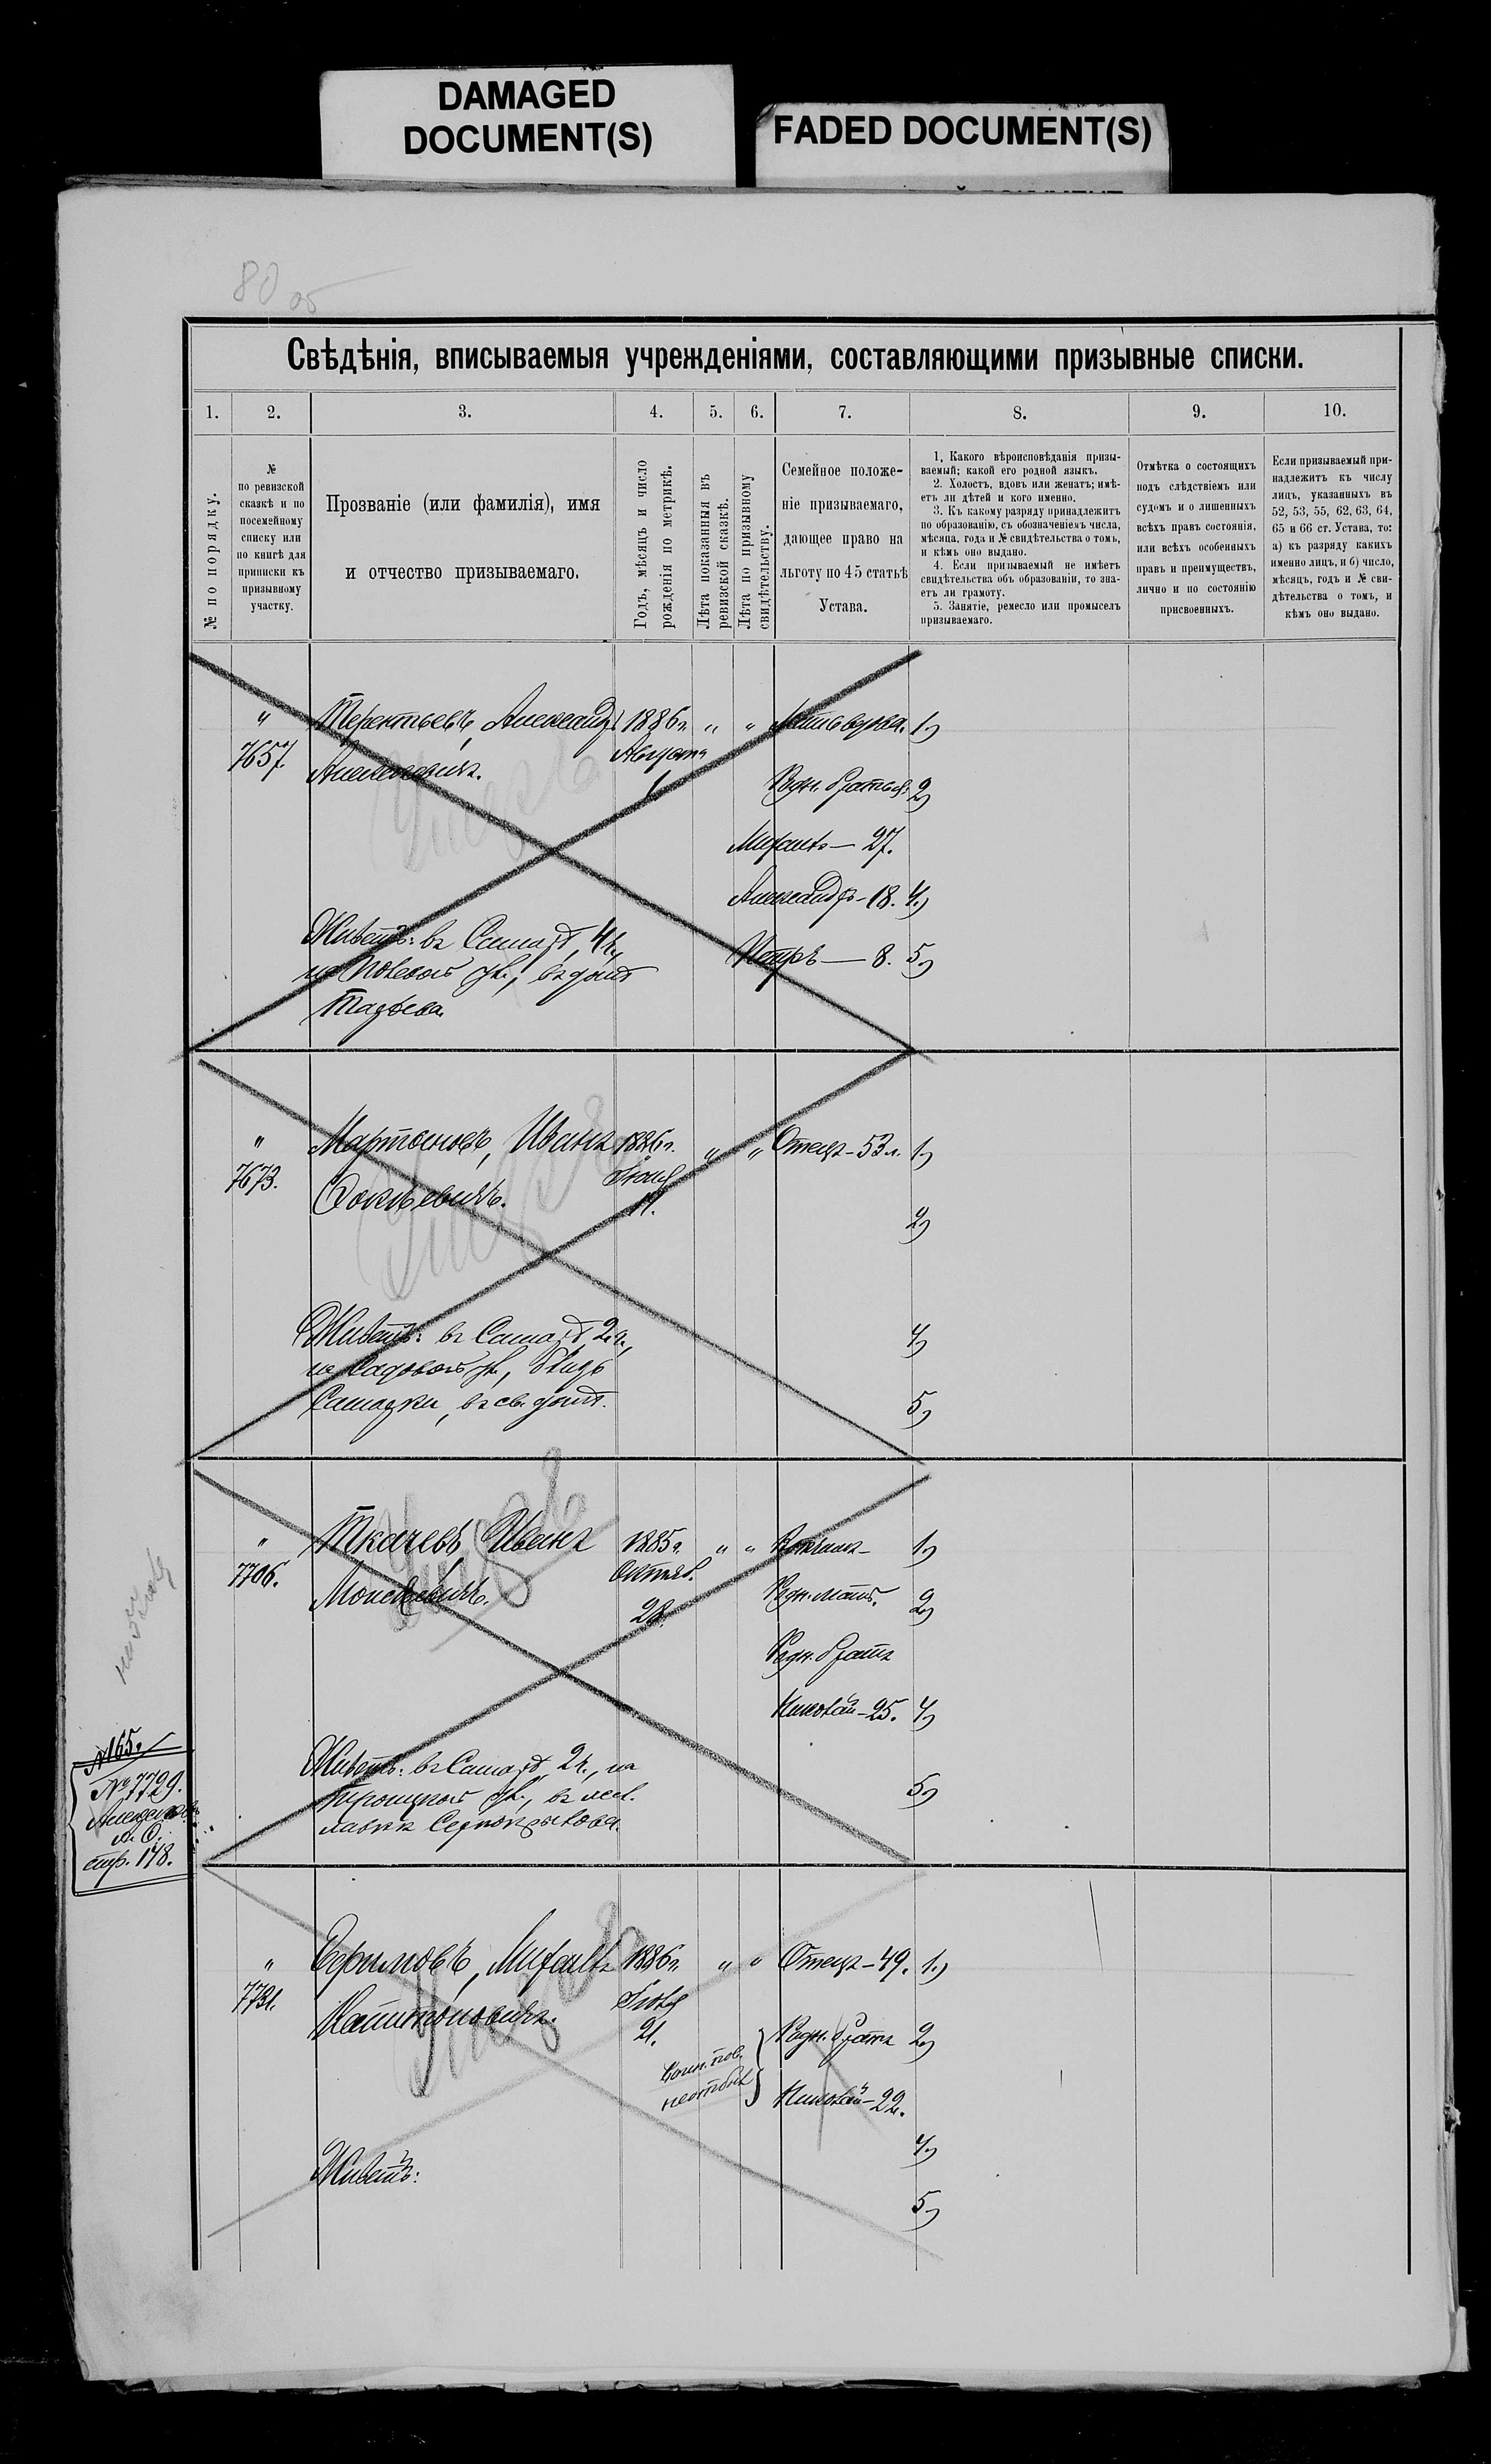 DAMAGED
DOCUMENT(S)
FADED DOCUMENT(S)
80 об
Свѣдѣнія, вписываемыя учрежденіями, составляющими призывные списки.
1.
2.
3.
4.
5.
6.
7.
8.
9.
10.
№ по порядку.
№
по ревизской
сказкѣ и по
посемейному
списку или
по книгѣ для
приписки къ
призывному
участку.
Прозваніе (или фамилія), имя
и отчество призываемаго.
Годъ, мѣсяцъ и число
рожденія по метрикѣ.
Лѣта показанныя въ
ревизской сказкѣ.
Лѣта по призывному
свидѣтельству.
Семейное положе-
ніе призываемаго,
дающее право на
льготу по 45 статьѣ
Устава.
1. Какого вѣроисповѣданія призы-
ваемый; какой его родной языкъ.
2. Холостъ, вдовъ или женатъ; имѣ-
етъ ли дѣтей и кого именно.
3. Къ какому разряду принадлежитъ
по образованію, съ обозначеніемъ числа,
мѣсяца, года и № свидѣтельства о томъ,
и кѣмъ оно выдано.
4. Если призываемый не имѣетъ
свидѣтельства объ образованіи, то зна-
етъ ли грамоту.
5. Занятіе, ремесло или промыселъ
призываемаго.
Отмѣтка о состоящихъ
подъ слѣдствіемъ или
судомъ и о лишенныхъ
всѣхъ правъ состоянія,
или всѣхъ особенныхъ
правъ и преимуществъ,
лично и по состоянію
присвоенныхъ.
Если призываемый при-
надлежитъ къ числу
лицъ, указанныхъ въ
52, 53, 55, 62, 63, 64,
65 и 66 ст. Устава, то:
а) къ разряду какихъ
именно лицъ, и б) число,
мѣсяцъ, годъ и № сви-
дѣтельства о томъ, и
кѣмъ оно выдано.
" Терентьевъ, Александръ 1886 г. " " Мать вдова. 1)
7657. Августа
Родн. братья: 2)
Михаилъ — 27.
Александръ — 18. 4)
Петръ — 8. 5)
Живетъ: въ Самарѣ, 4 ч.,
на Полевой ул., въ домѣ
Умеръ
" Мартыновъ, Иванъ 1886 г. " " Отецъ — 53 л. 1)
7673. Фокѣевичъ. 11.
2)
Живетъ: въ Самарѣ, 2 ч., 4)
на Садовой ул., близь
Самарки, въ св. домѣ. 5)
Умеръ
" Ткачевъ, Иванъ 1885 г. " " 1)
7706. Моисеевичъ. Октяб. 28. Родн. мать. 2)
Родн. братъ
Николай — 25. 4)
Живетъ: въ Самарѣ, 2 ч., на
Троицкой ул., въ 5)
лавкѣ
Умеръ
№ 165.
№ 7729.
стр. 148.
" Ефимовъ, Михаилъ 1886 г. " " Отецъ — 49. 1)
7731. Капитоновичъ. 21. Родн. братъ 2)
Николай — 22.
4)
Живетъ: 5)
Умеръ